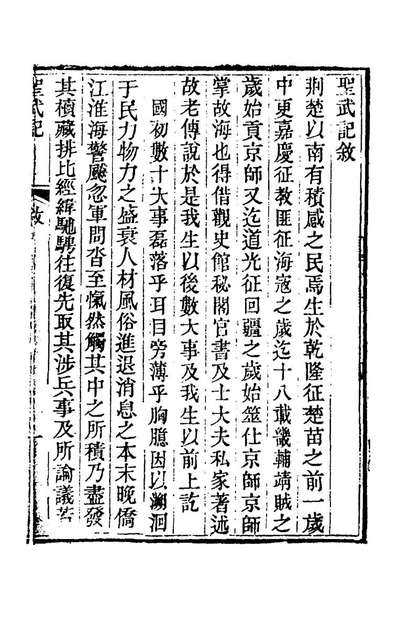 聖武記敘
荆楚以南有積感之民焉生於乾隆征楚苗之前一歲
中更嘉慶征教匪征海寇之歲迄十八載畿輔靖賊之
歲始貢京師又迄道光征回疆之歲始筮仕京師京師
掌故海也得借觀史館秘閣官書及士大夫私家著述
故老傳說於是我生以後數大事及我生以前上訖
國初數十大事磊落乎耳目旁薄乎胸臆因以溯洄
于民力物力之盛衰人材風俗進退消息之本末晚僑
江淮海警飈忽軍問沓至愾然觸其中之所積乃盡發
其櫝藏排比經緯馳騁往復先取其涉兵事及所論議若
聖武記
敘